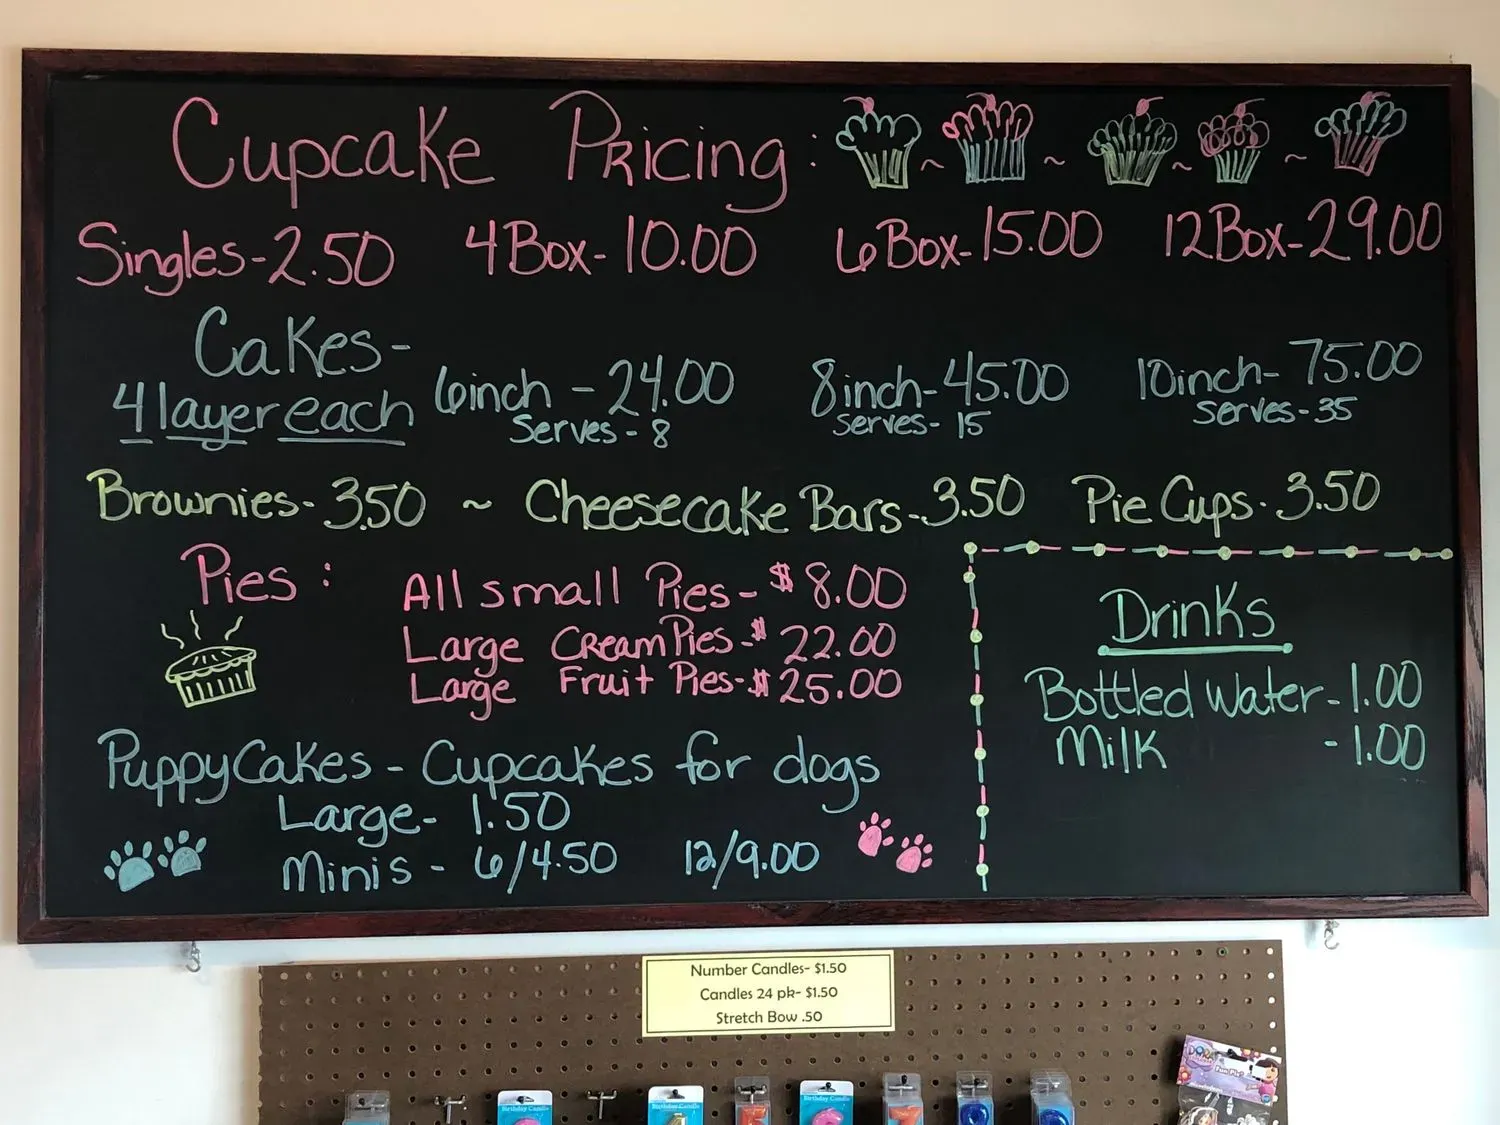 Cupcake Pricing :
Singles - 2.50 4 Box - 10.00 6 Box - 15.00 12 Box - 29.00
Cakes -
4 layer each
6 inch - 24.00 8 inch - 45.00 10 inch - 75.00
Serves - 8 Serves - 15 Serves - 35
Brownies - 3.50 ~ Cheesecake Bars - 3.50 Pie Cups - 3.50
Pies :
All small Pies - $ 8.00
Large Cream Pies - $ 22.00
Large Fruit Pies - $ 25.00
Drinks
Bottled Water - 1.00
Milk - 1.00
PuppyCakes - Cupcakes for dogs
Large - 1.50
Minis - 6/4.50 12/9.00
Number Candles- $1.50
Candles 24 pk- $1.50
Stretch Bow .50
Birthday Candle
Birthday Candle
Birthday Candle
DORA